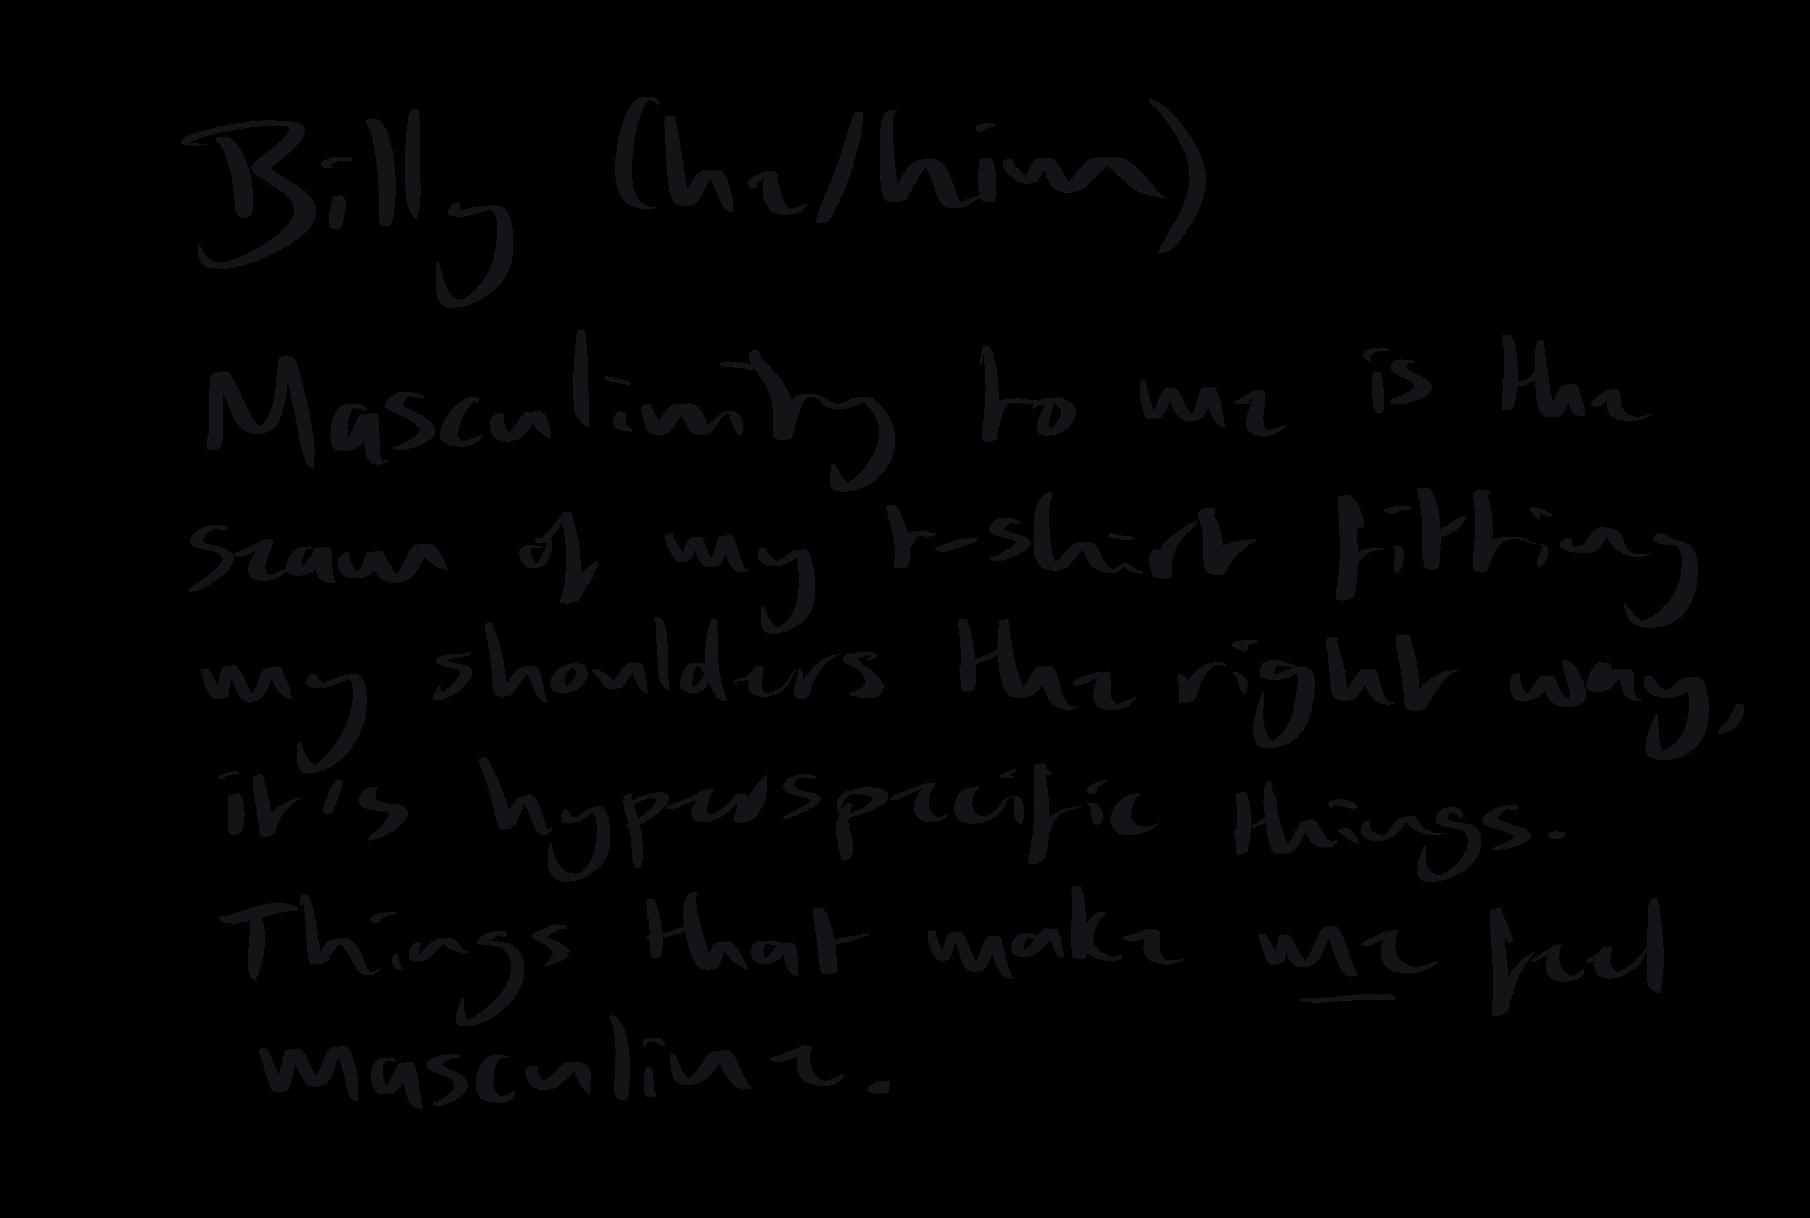 Billy (he/him)
Masculinity to me is the
seam of my t-shirt fitting
my shoulders the right way,
it's hyperspecific things.
Things that make me feel
masculine.